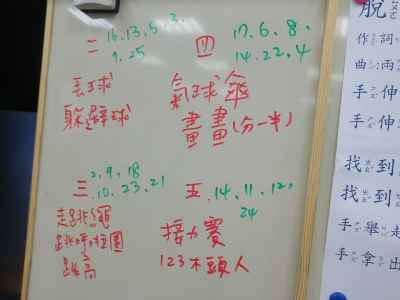 二 16.13.5.3.
9.25
丟球
躲避球
四 17.6.8.
14.22.4
氣球傘
畫畫(分一半)
三 2.9.18
10.23.21
走跳繩
跳呼拉圈
跳高
五.14.11.12.
24
接力賽
123木頭人
脫
作詞
曲:兩
手伸
手伸
找到
找到
手舉
手拿出